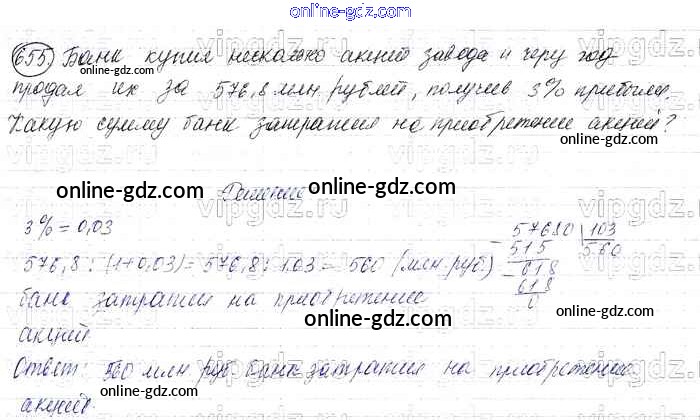 online-gdz.com
655 Банк купил несколько акций завода и через год
online-gdz.com
продал их за 576,8 млн. рублей, получив 3% прибыли.
Какую сумму банк затратил на приобретение акций?
online-gdz.com
Решение
3% = 0,03
576,8 : (1+0,03) = 576,8 : 1,03 = 560 (млн. руб.)
банк затратил на приобретение
акций
57680 103
515 560
618
618
0
online-gdz.com
Ответ: 560 млн руб. банк затратил на приобретение
акций.
online-gdz.com